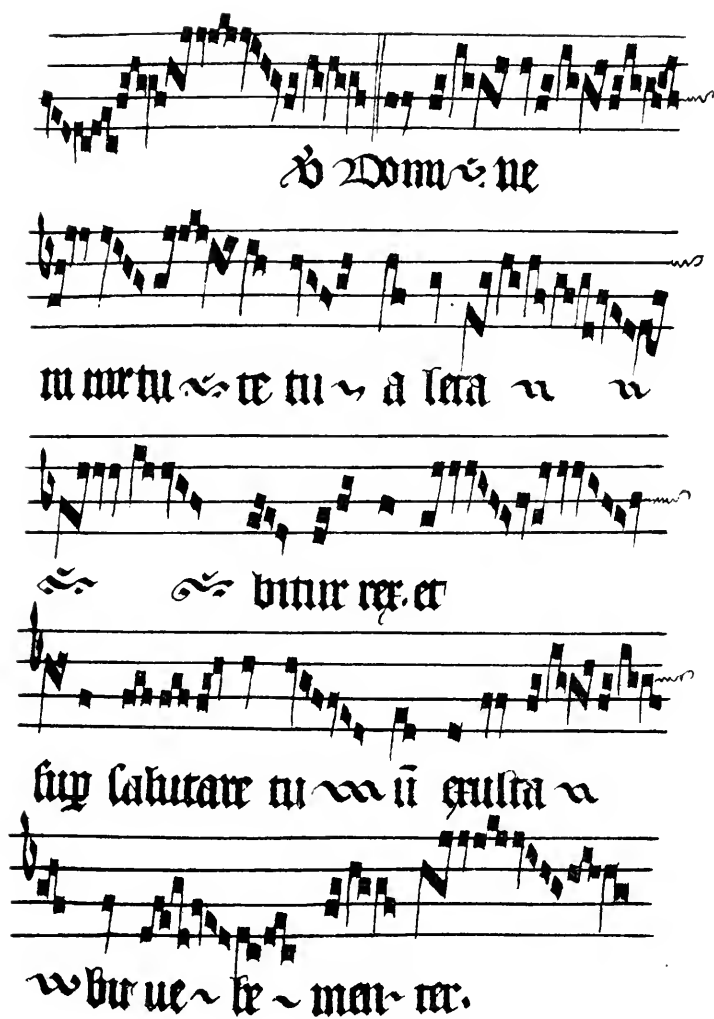 Domi ne
in uirtu te tu a leta
bitur rex. et
sup salutare tu ū exulta
bit ue he men ter.